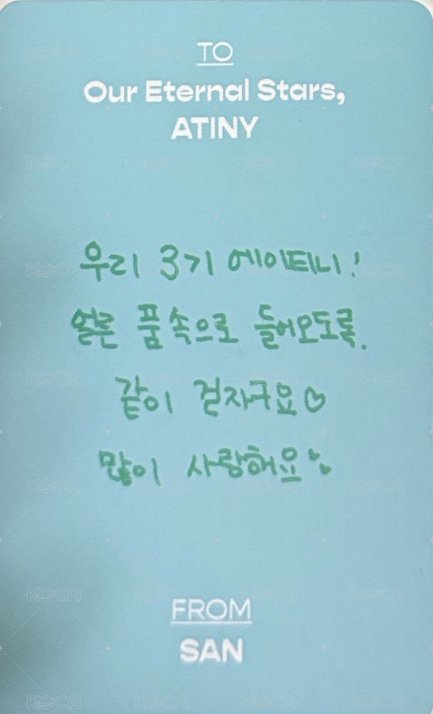 TO
Our Eternal Stars,
ATINY
우리 3기 에이티니!
얼른 품 속으로 들어오도록.
같이 걷자구요♡
많이 사랑해요
FROM
SAN